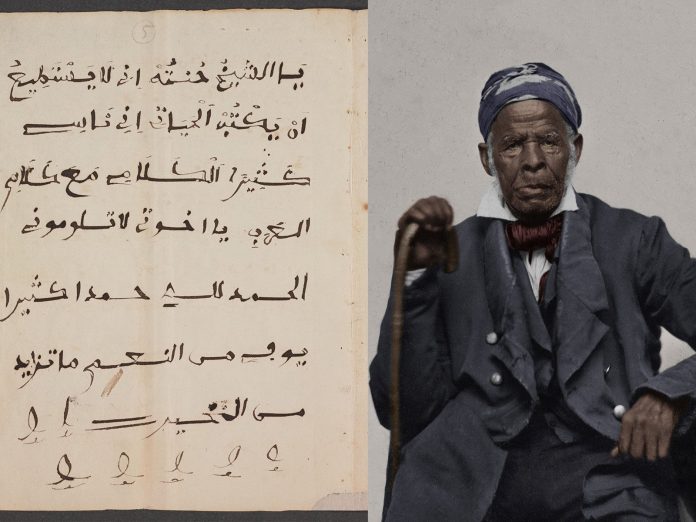 5
يَا الشَّيْخُ حُنتُهْ اِنِ لَا يَسْتَطِيعُ
انْ يَكْتُبْ اَلْحَيَاتِ اِنِ نَاسِي
كَثِيرًا الْكَلَامِ مَع كَلَامِ
الْعَرَبِ يا اخوتِ لا تلومونِ
الحمد لله حمدا كثيرا
يوفي من النعم ما تزايد
من الخير